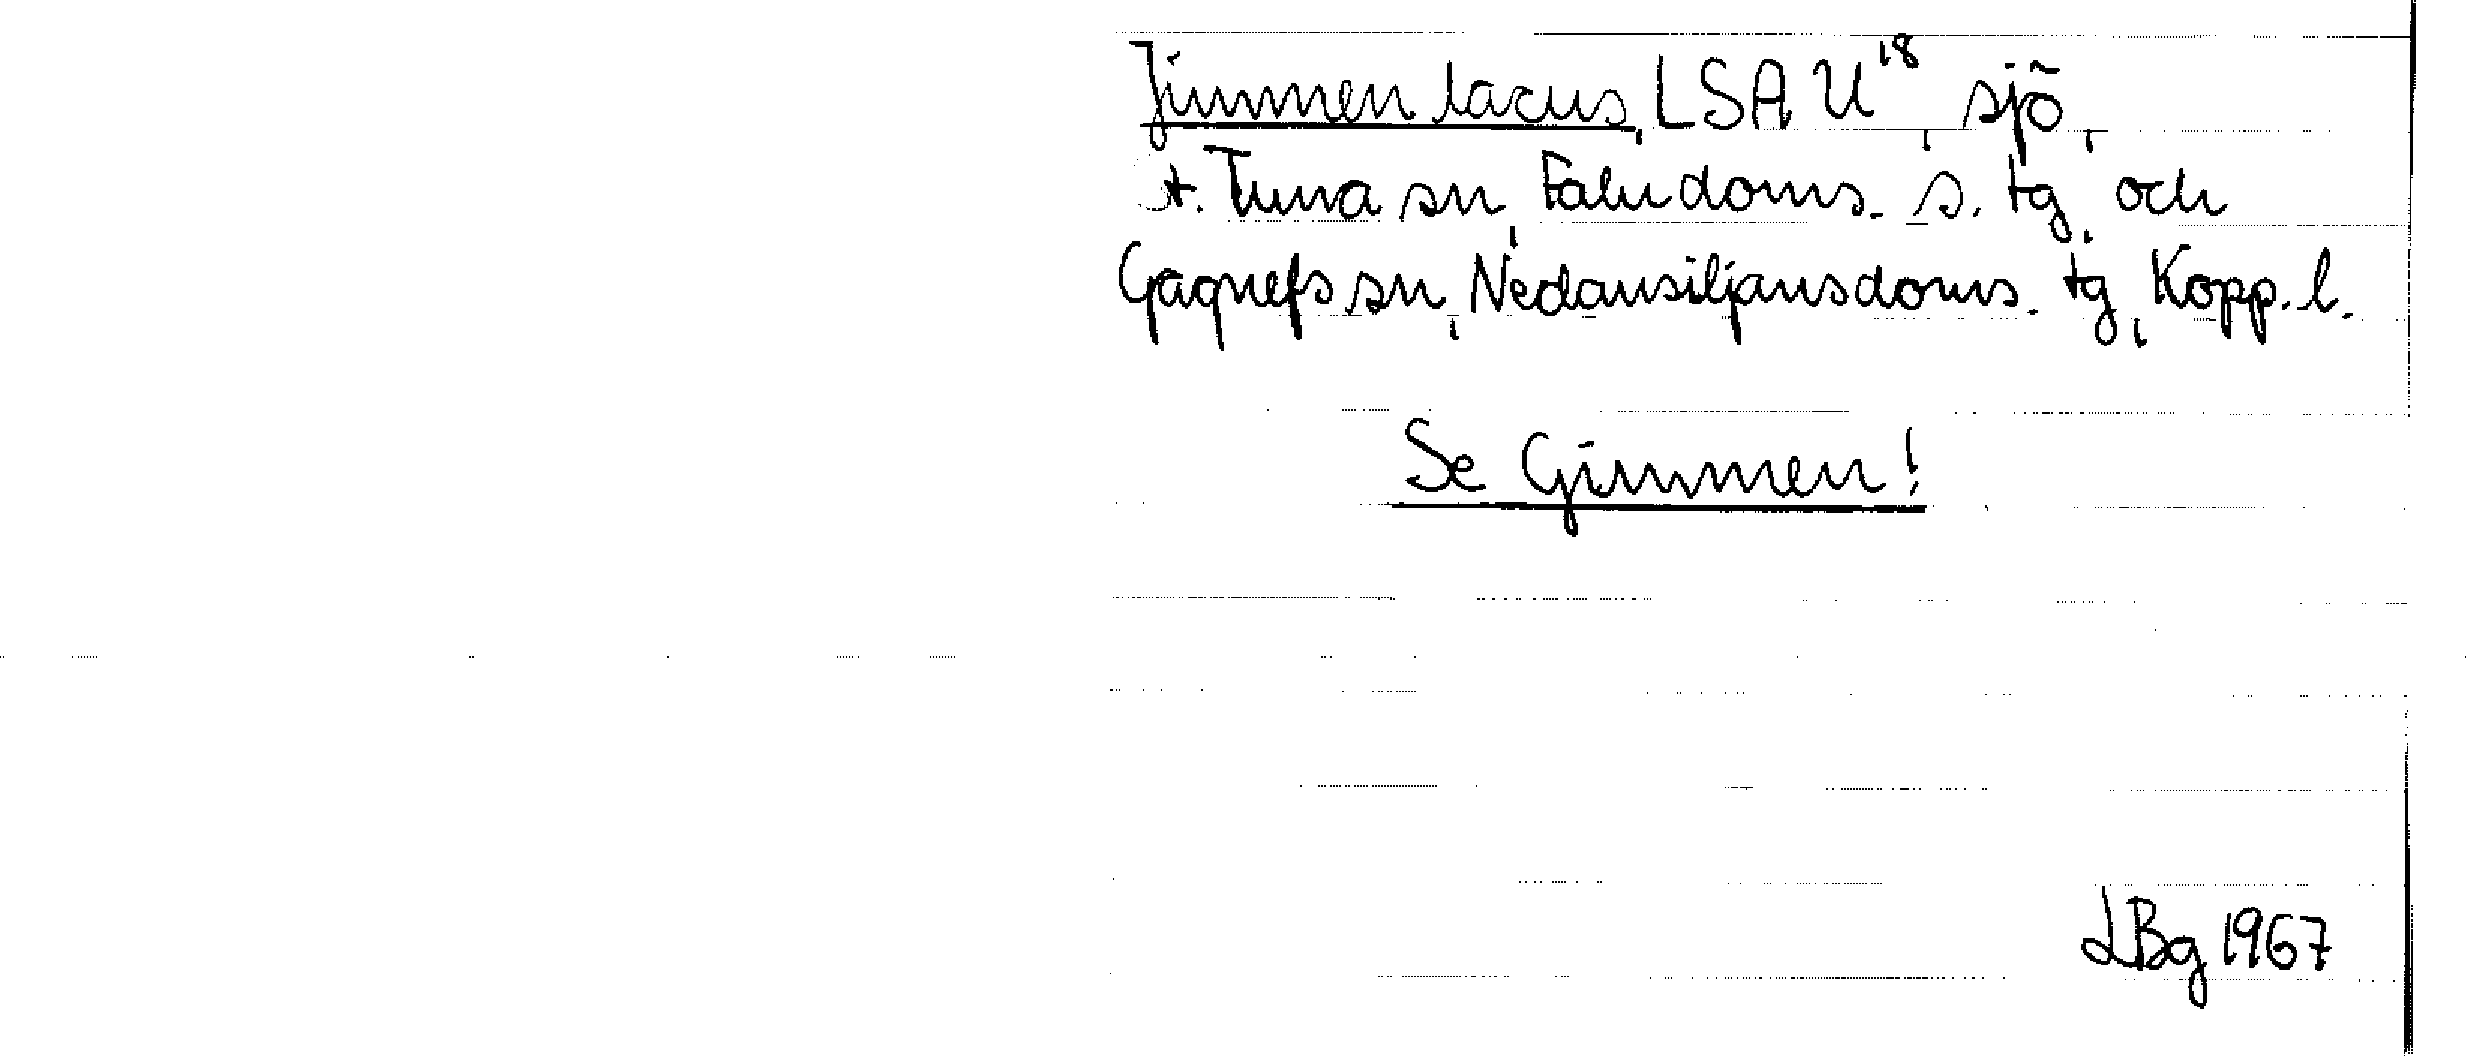 Jimmen lacus, LSA U¹⁸, sjö,
St. Tuna sn, Falu doms. s. tg, och
Gagnefs sn, Nedansiljansdoms. tg, Kopp. l.
Se Gimmen!
LBg 1967